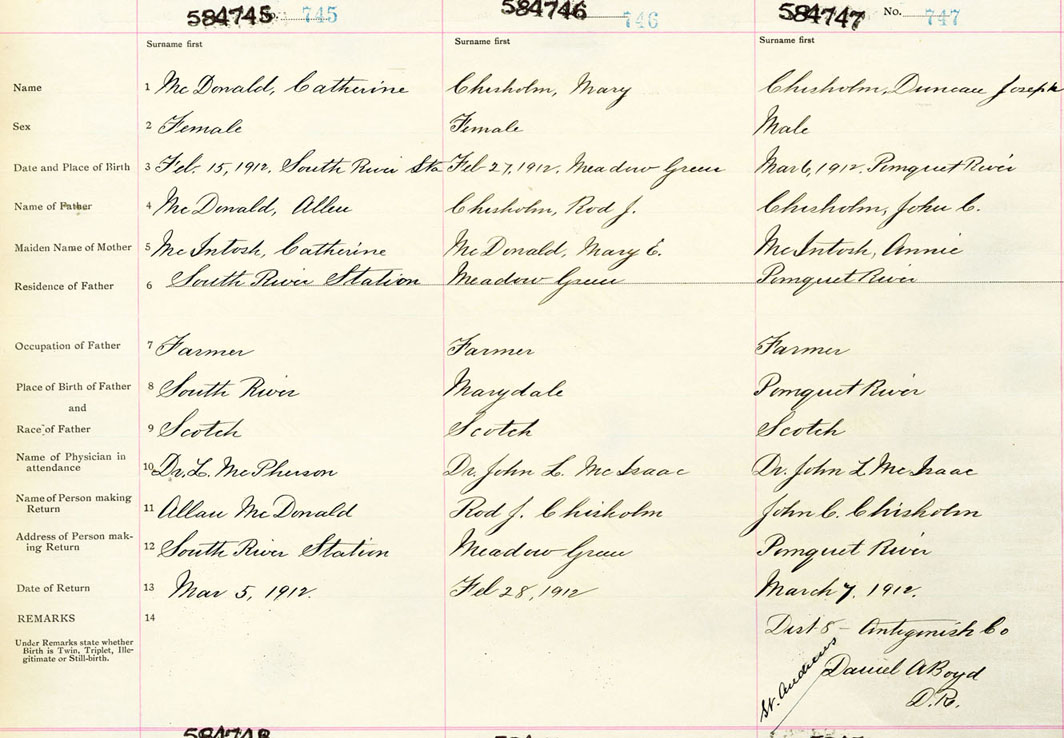 584745 745 584746 746 584747 No. 747
Surname first Surname first Surname first
Name 1 McDonald, Catherine Chisholm, Mary Chisholm, Duncan Joseph
Sex 2 Female Female Male
Date and Place of Birth 3 Feb. 15, 1912, South River Sta Feb 27, 1912, Meadow Green Mar 6, 1912. Pomquet River
Name of Father 4 McDonald, Allen Chisholm, Rod J. Chisholm, John C.
Maiden Name of Mother 5 McIntosh, Catherine McDonald, Mary E. McIntosh, Annie
Residence of Father 6 South River Station Meadow Green Pomquet River
Occupation of Father 7 Farmer Farmer Farmer
Place of Birth of Father 8 South River Marydale Pomquet River
and
Race of Father 9 Scotch Scotch Scotch
Name of Physician in
attendance 10 Dr. L. McPherson Dr. John L. McIsaac Dr. John L McIsaac
Name of Person making
Return 11 Allan McDonald Rod J. Chisholm John C. Chisholm
Address of Person mak-
ing Return 12 South River Station Meadow Green Pomquet River
Date of Return 13 Mar 5, 1912. Feb 28, 1912 March 7, 1912.
REMARKS 14
Under Remarks state whether
Birth is Twin, Triplet, Ille-
gitimate or Still-birth.
Dist 8 - Antigonish Co
St. Andrews
Daniel A Boyd
D.R.